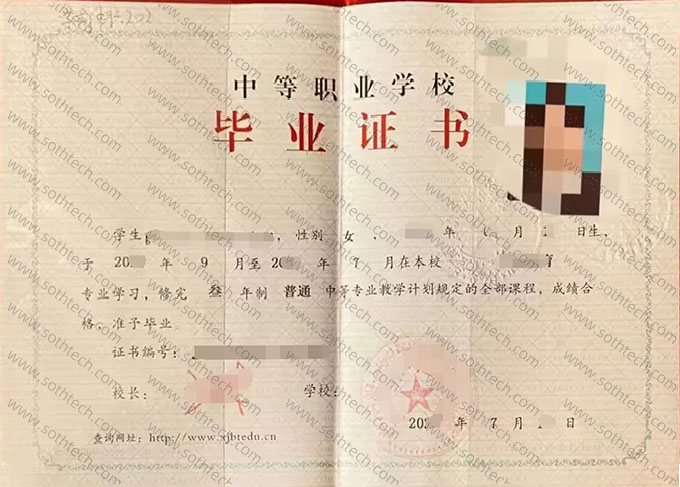 中等职业学校
毕业证书
学生 ，性别 女 ， 年 月 日生，
于 20 年 9 月至 20 年 7 月在本校 育
专业学习，修完 叁 年制 普通 中等专业教学计划规定的全部课程，成绩合
格，准予毕业。
证书编号：
校长： 学校：
202 年 7 月 日
查询网址：http://www.xjbtedu.cn
www.sothtech.com